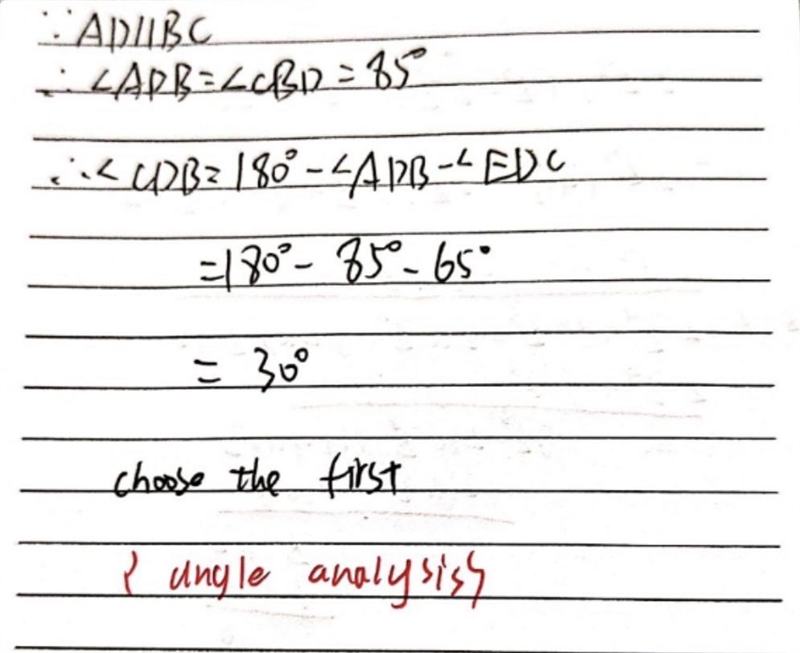 ∵AD∥BC
∴∠ADB=∠CBD=85°
∴∠CDB=180°-∠ADB-∠EDC
=180°-85°-65°
=30°
choose the first
{angle analysis}